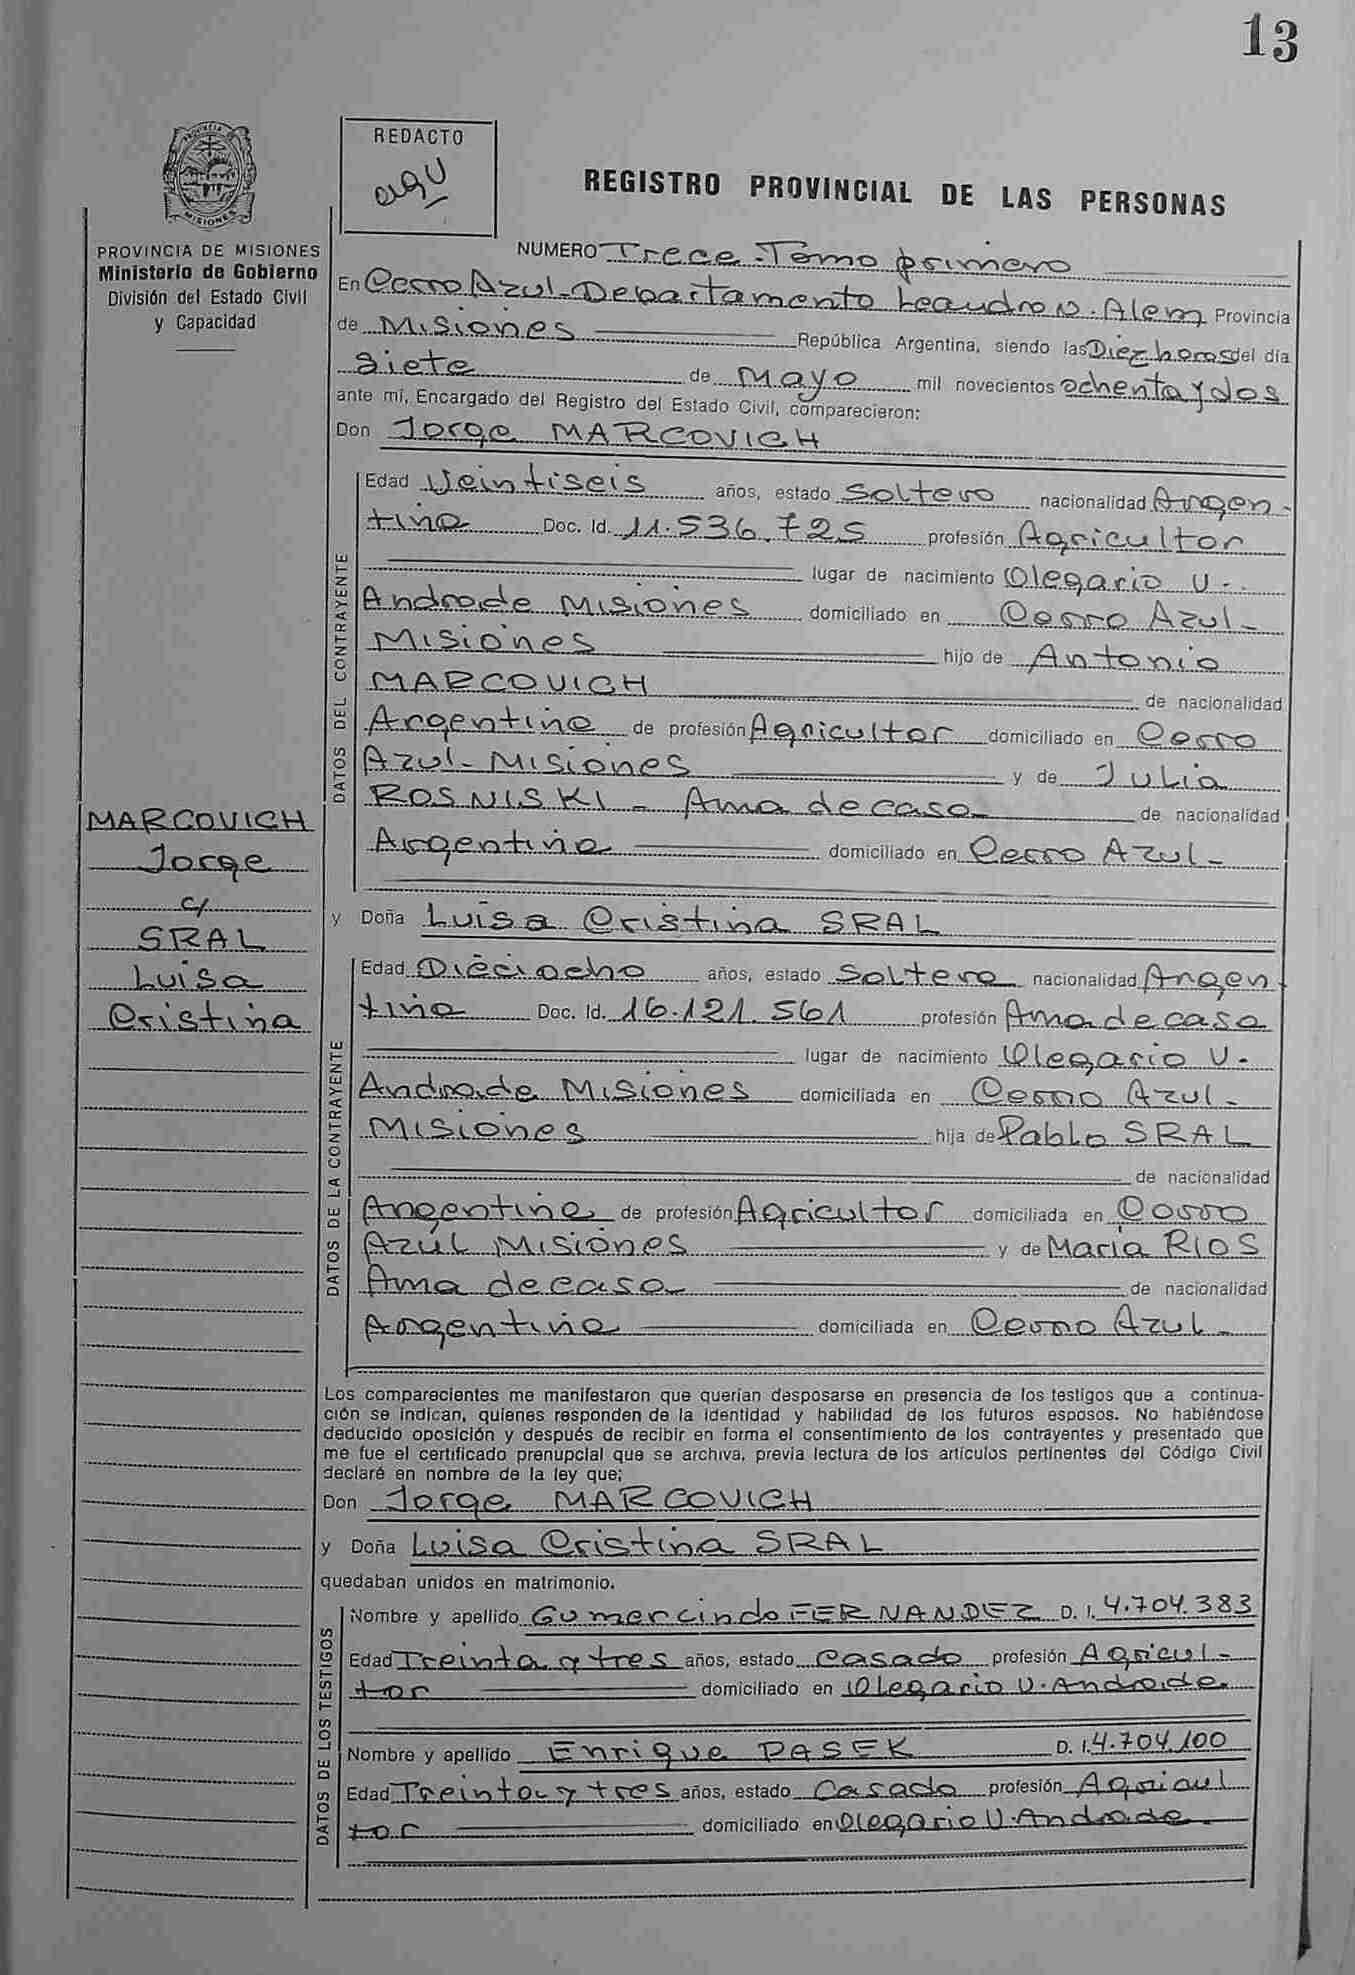 13
PROVINCIA DE
MISIONES
REDACTO
REGISTRO PROVINCIAL DE LAS PERSONAS
PROVINCIA DE MISIONES
Ministerio de Gobierno
División del Estado Civil
y Capacidad
NUMERO Trece - Tomo primero
En Cerro Azul - Departamento Leandro N. Alem Provincia
de Misiones República Argentina, siendo las Diez horas del día
Siete de Mayo mil novecientos ochenta y dos
ante mí, Encargado del Registro del Estado Civil, comparecieron:
Don Jorge MARCOVICH
DATOS DEL CONTRAYENTE
Edad Veintiseis años, estado Soltero nacionalidad Argen-
tina Doc. Id. 11.536.725 profesión Agricultor
lugar de nacimiento Olegario V.
Andrade Misiones domiciliado en Cerro Azul-
Misiones hijo de Antonio
MARCOVICH de nacionalidad
Argentina de profesión Agricultor domiciliado en Cerro
Azul - Misiones y de Julia
ROSNISKI - Ama de casa de nacionalidad
Argentina domiciliado en Cerro Azul-
MARCOVICH
Jorge
c/
SRAL
Luisa
Cristina
y Doña Luisa Cristina SRAL
DATOS DE LA CONTRAYENTE
Edad Dieciocho años, estado Soltera nacionalidad Argen
tina Doc. Id. 16.121.561 profesión Ama de casa
lugar de nacimiento Olegario V.
Andrade Misiones domiciliada en Cerro Azul-
Misiones hija de Pablo SRAL
de nacionalidad
Argentina de profesión Agricultor domiciliada en Cerro
Azul Misiones y de María RIOS
Ama de casa de nacionalidad
Argentina domiciliada en Cerro Azul-
Los comparecientes me manifestaron que querían desposarse en presencia de los testigos que a continua-
ción se indican, quienes responden de la identidad y habilidad de los futuros esposos. No habiéndose
deducido oposición y después de recibir en forma el consentimiento de los contrayentes y presentado que
me fue el certificado prenupcial que se archiva, previa lectura de los artículos pertinentes del Código Civil
declaré en nombre de la ley que;
Don Jorge MARCOVICH
y Doña Luisa Cristina SRAL
quedaban unidos en matrimonio.
DATOS DE LOS TESTIGOS
Nombre y apellido Gumercindo FERNANDEZ D. I. 4.704.383
Edad Treinta y tres años, estado Casado profesión Agricul-
tor domiciliado en Olegario V. Andrade.
Nombre y apellido Enrique PASEK D. I. 4.704.100
Edad Treinta y tres años, estado Casado profesión Agricul
tor domiciliado en Olegario V. Andrade.